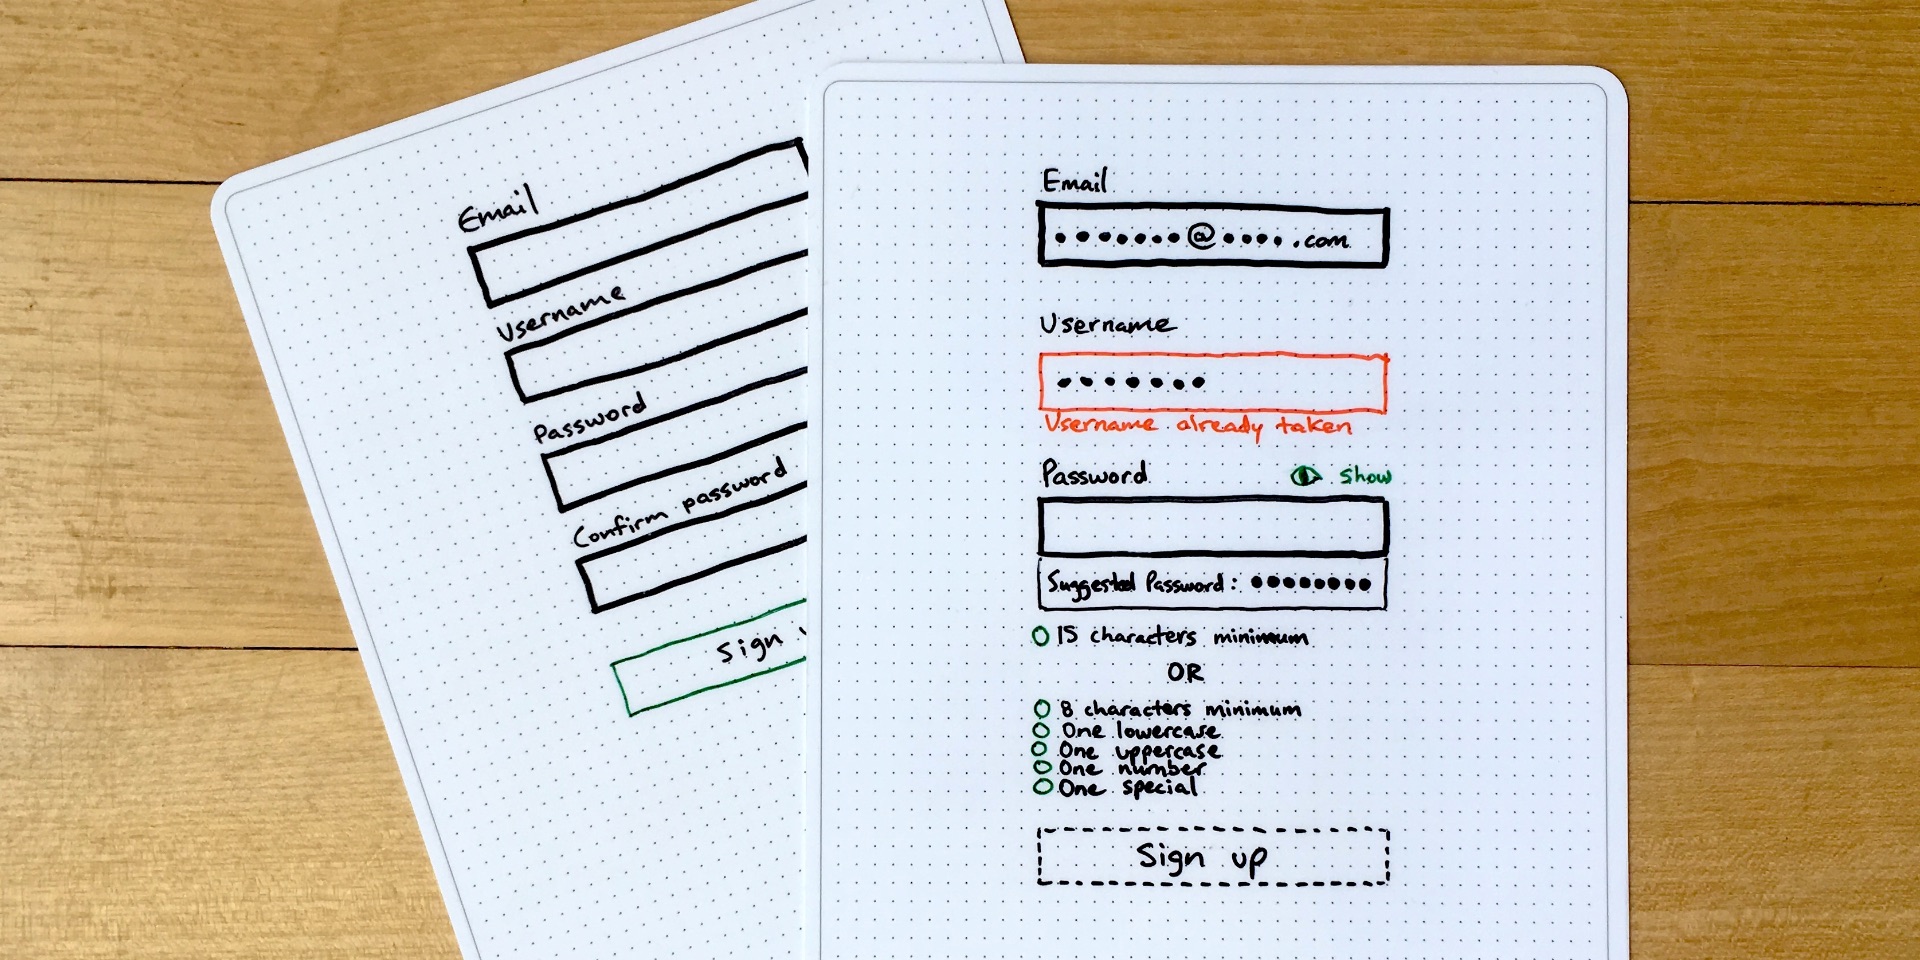 Email
Username
Password
Confirm password
Sign
Email
•••••••@••••.com
Username
•••••••
Username already taken
Password
Show
Suggested Password: ••••••••
15 characters minimum
OR
8 characters minimum
One lowercase
One uppercase
One number
One special
Sign up